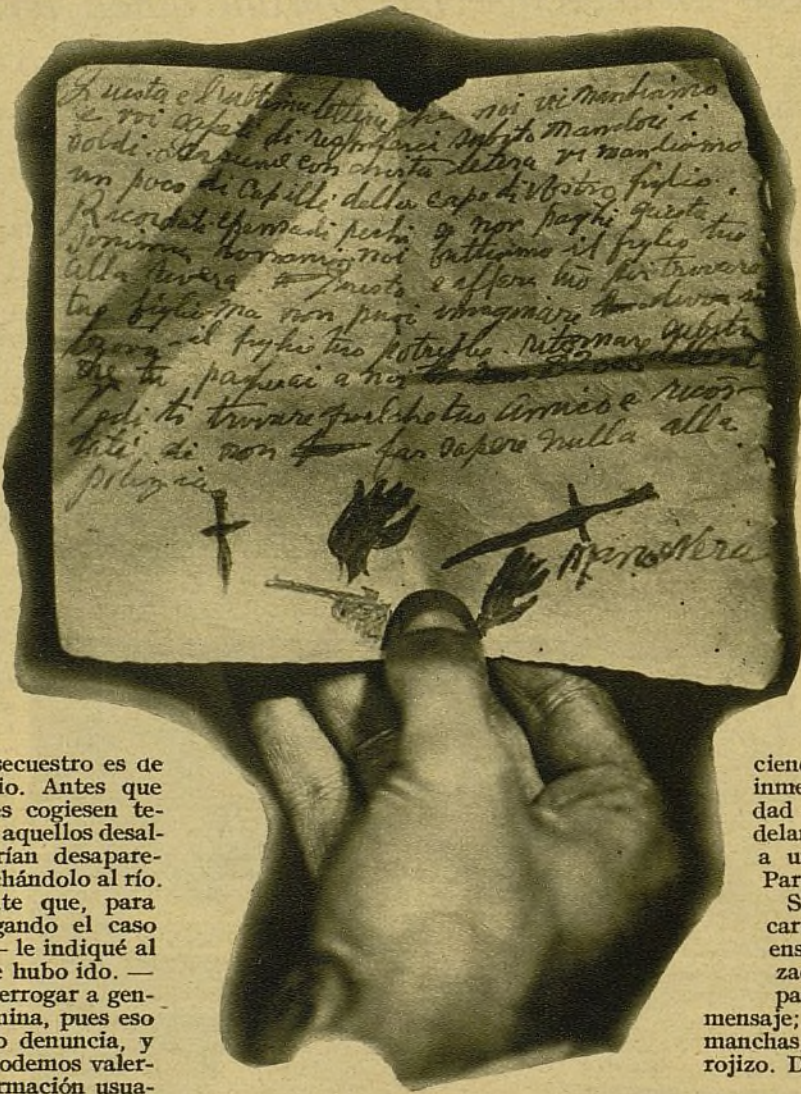 Questa e l'ultima lettera che noi vi mandiamo
e voi di subito mandoci i
soldi. con chista letera vi mandiamo
un poco di Capilli della capo di Vostro figlio.
Ricordati pechi si non paghi questa
Somima noi buttiamo il figlio tuo
alla rivera. Questo e affare tuo per trovare
tuo figlio ma non puoi imaginare
trova il figlio tuo potrebbe ritornare subito
tu pagherai a noi
di ti trovare qualche tuo Amico e ricor-
tati di non far sapere nulla alla
polizia
Mano Nera
secuestro es de
io. Antes que
es cogiesen te-
aquellos desal-
rían desapare-
chándolo al río.
te que, para
gando el caso
— le indiqué al
e hubo ido. —
errogar a gen-
mina, pues eso
o denuncia, y
odemos valer-
rmación usua-
cienc
inme
dad
delan
a u
Par
S
car
ens
zac
pa
mensaje;
manchas
rojizo. D